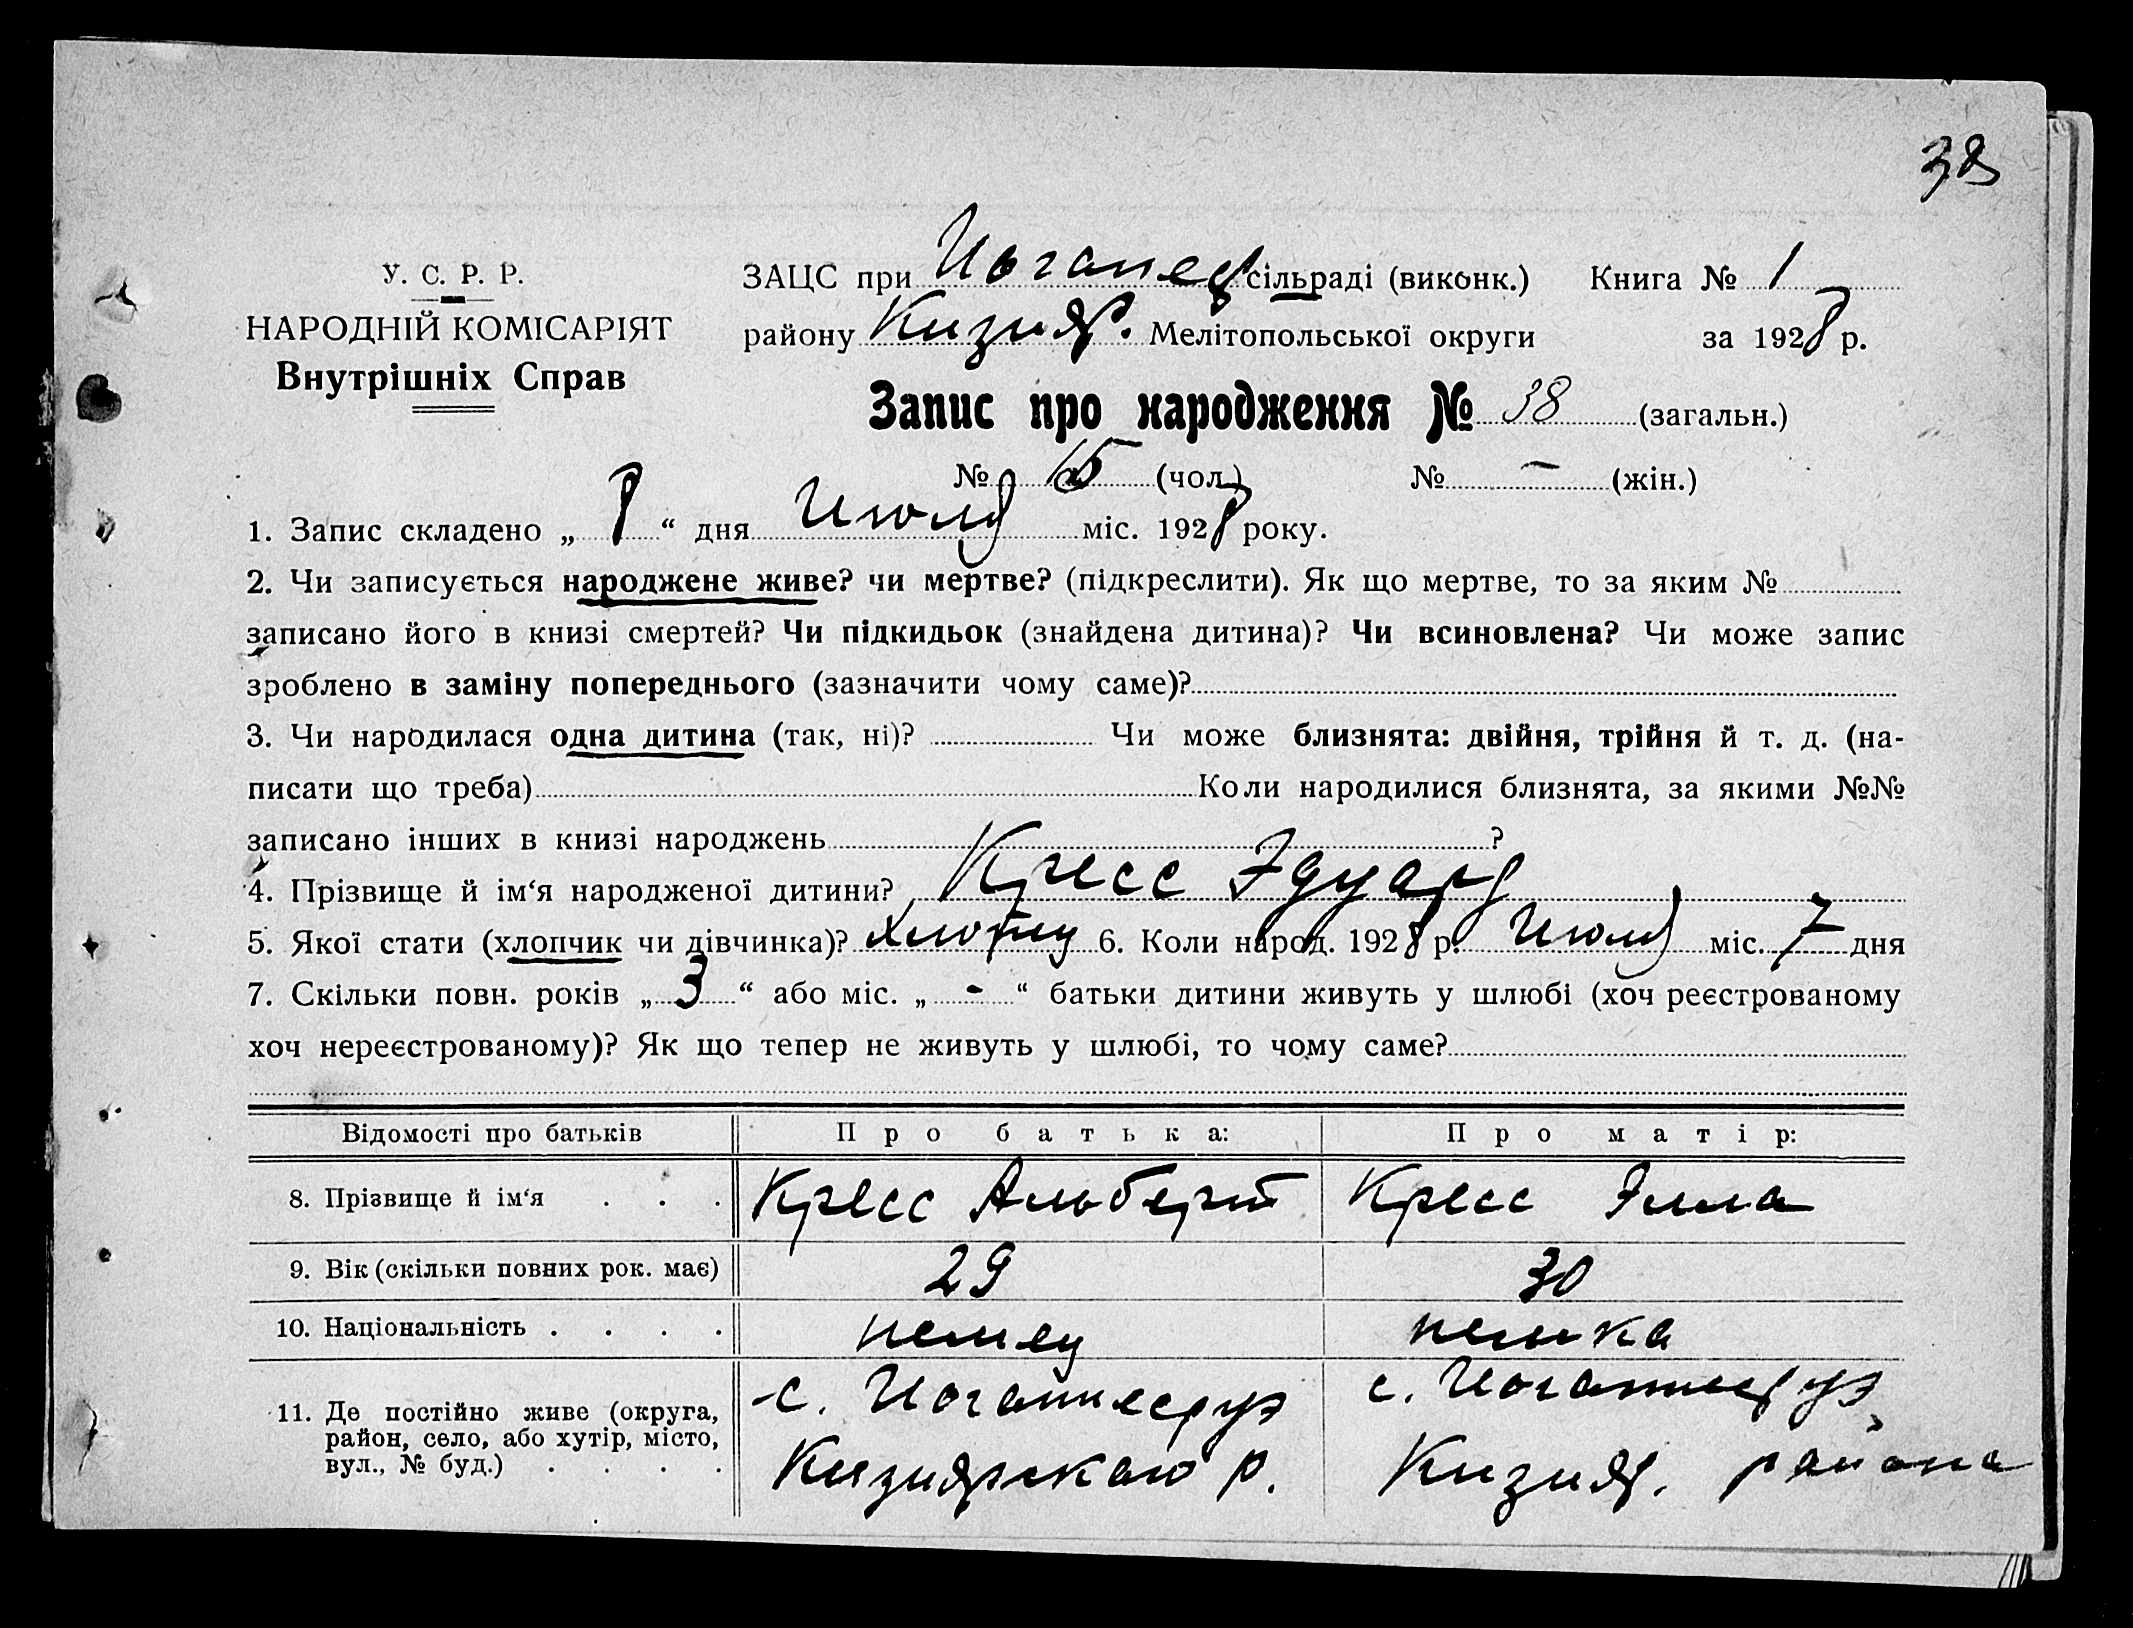 38
У. С. Р. Р.
НАРОДНІЙ КОМІСАРІЯТ
Внутрішніх Справ
ЗАЦС при Иоганес сільраді (виконк.) Книга № 1
району Кизияр. Мелітопольської округи за 1928 р.
Запис про народження № 38 (загальн.)
№ 15 (чол.) № – (жін.)
1. Запис складено „ 8 “ дня Июля міс. 1928 року.
2. Чи записується народжене живе? чи мертве? (підкреслити). Як що мертве, то за яким №
записано його в книзі смертей? Чи підкидьок (знайдена дитина)? Чи всиновлена? Чи може запис
зроблено в заміну попереднього (зазначити чому саме)?
3. Чи народилася одна дитина (так, ні)? Чи може близнята: двійня, трійня й т. д. (на-
писати що треба) Коли народилися близнята, за якими №№
записано інших в книзі народжень ?
4. Прізвище й ім‘я народженої дитини? Кресс Эдуард
5. Якої стати (хлопчик чи дівчинка)? 6. Коли народ. 1928 р. Июля міс. 7 дня
7. Скільки повн. років „ 3 “ або міс. „ - “ батьки дитини живуть у шлюбі (хоч реєстрованому
хоч нереєстрованому)? Як що тепер не живуть у шлюбі, то чому саме?
Відомості про батьків Про батька: Про матір:
8. Прізвище й ім‘я . . . Кресс Альберт Кресс Элла
9. Вік (скільки повних рок. має) 29 30
10. Національність . . . . немец немка
11. Де постійно живе (округа, район, село, або хутір, місто, вул., № буд.) . . . . с. Иоганнесруэ Кизиярского р. с. Иоганнесруэ, Кизияр. района